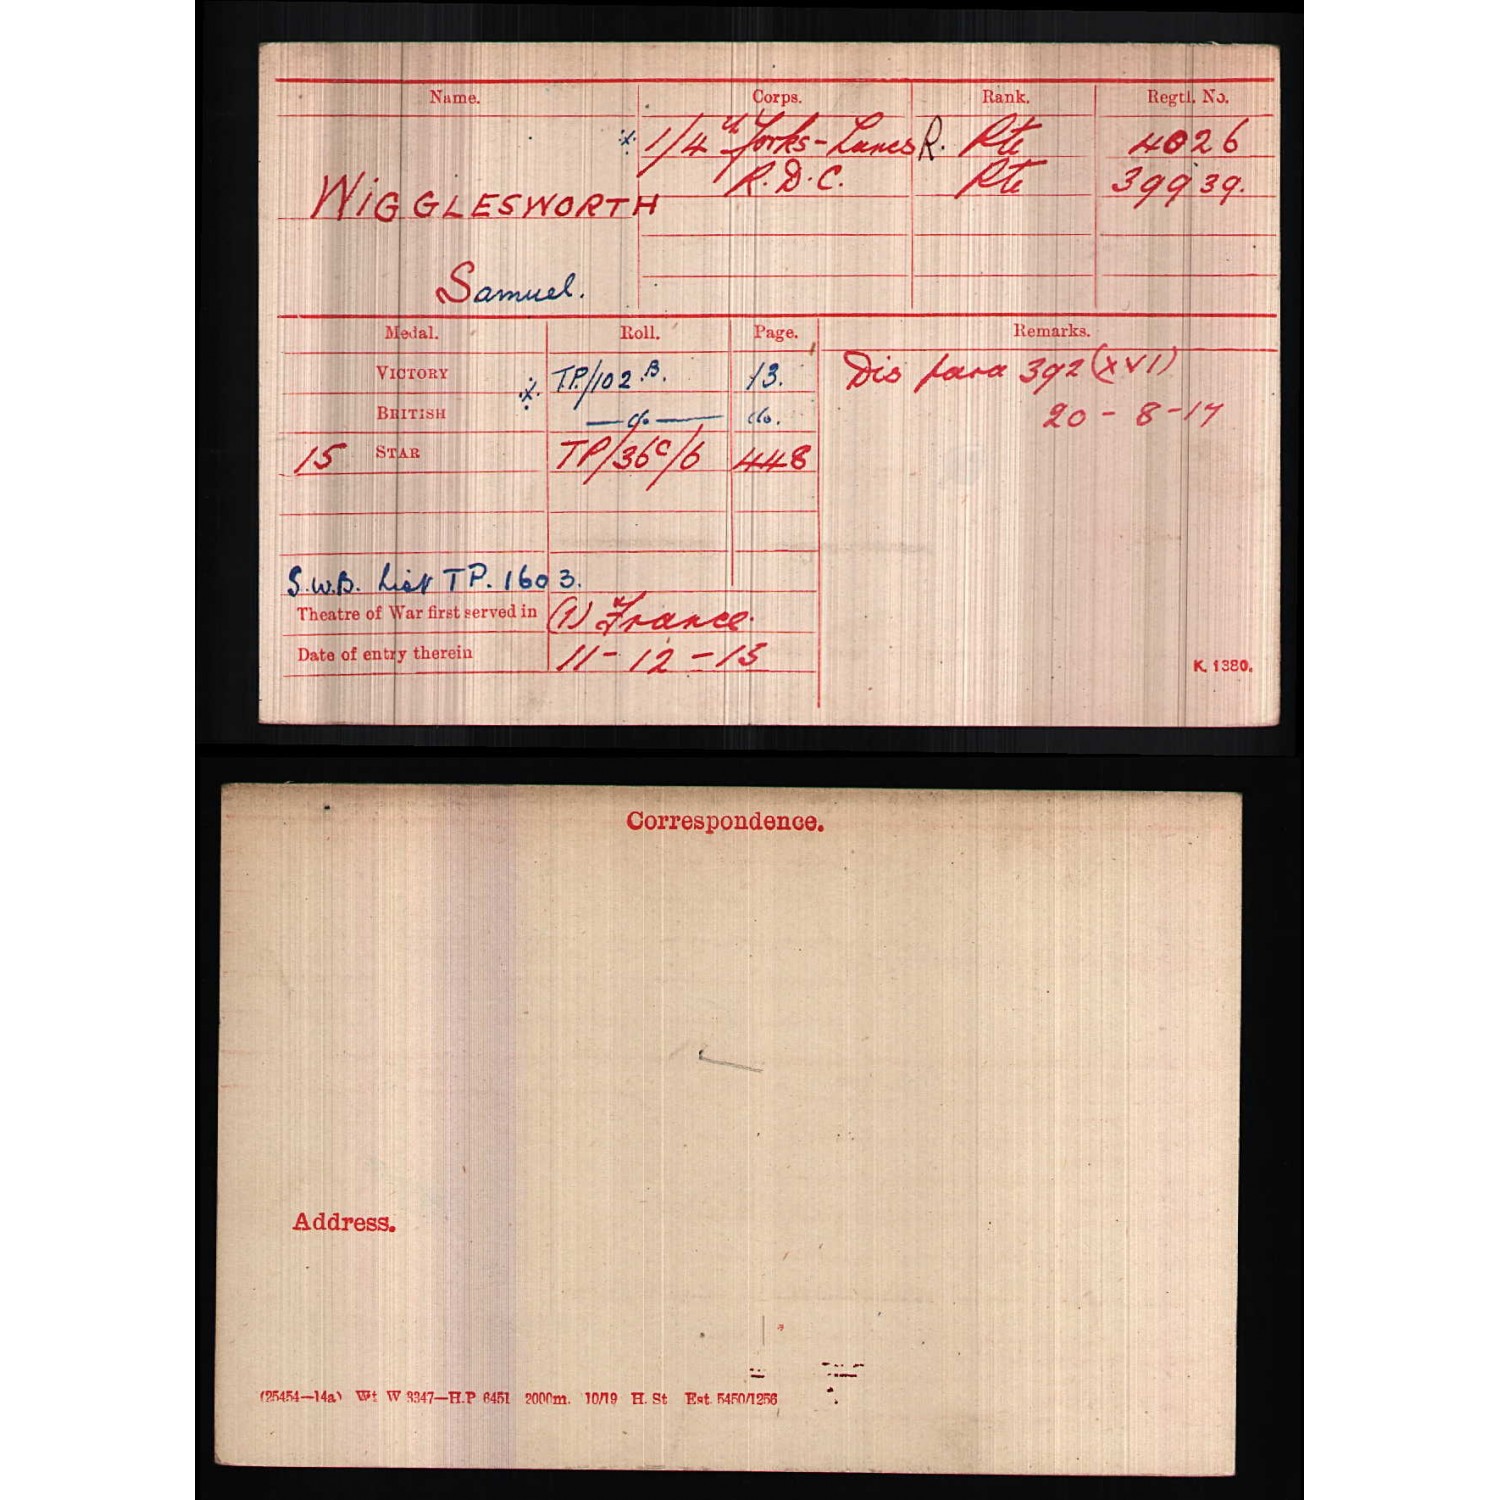 Name. Corps. Rank. Regtl. No.
1/4th Yorks-Lancs R. Pte 4026
R.D.C. Pte 39939.
WIGGLESWORTH
Samuel.
Medal. Roll. Page. Remarks.
VICTORY TP/102 B. 13. Dis para 392 (XVI)
BRITISH —do— do. 20-8-17
15 STAR TP/36C/6 448
S.W.B. List TP. 1603.
Theatre of War first served in (1) France
Date of entry therein 11-12-15
K. 1380.
Correspondence.
Address.
(25454—14a) Wt W 3347—H.P 6451 2000m. 10/19 H. St Est. 5450/1256